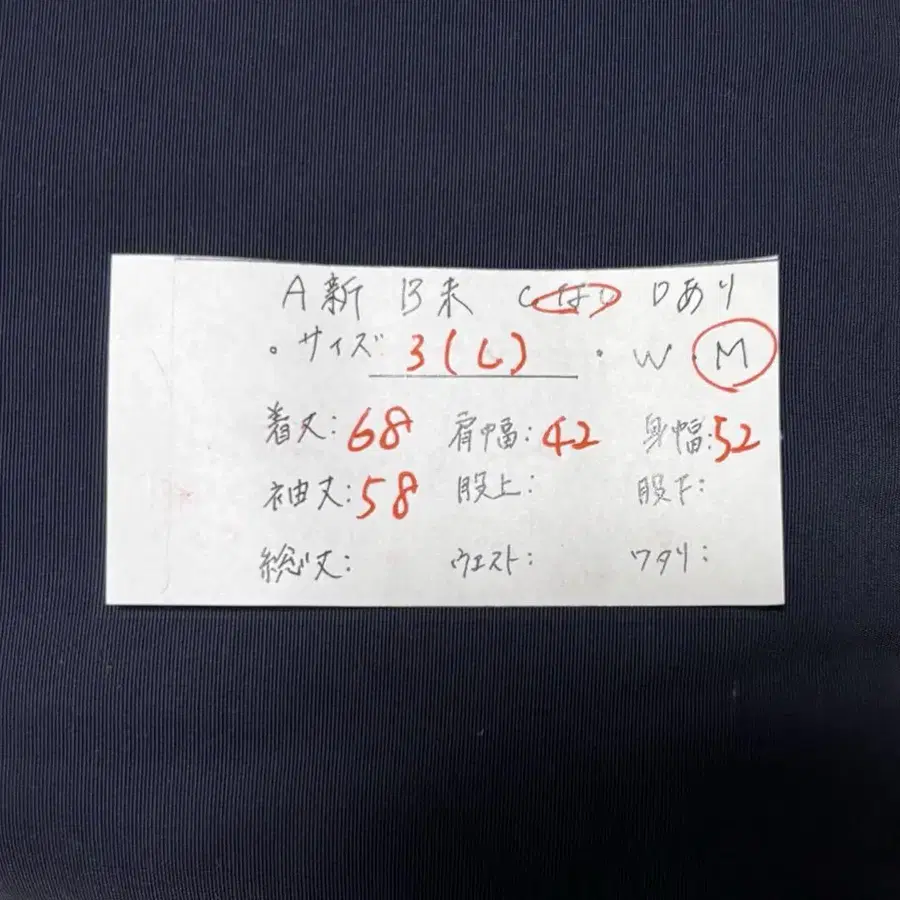 A新 B未 Cなし Dあり
・サイズ 3(L) ・W・M
着丈:68 肩幅:42 身幅:52
袖丈:58 股上: 股下:
総丈: ウエスト: ワタリ: